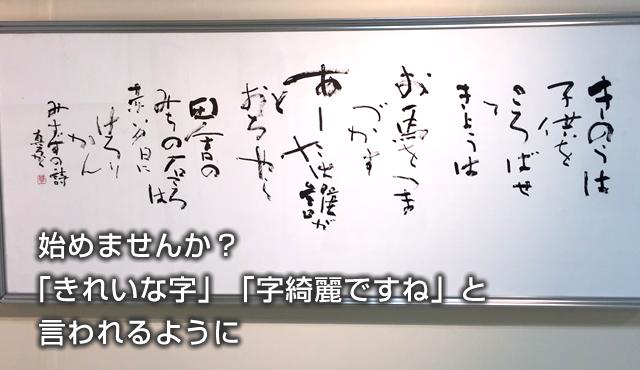 きのうは
子供を
ころばせ
て
きょうは
お馬をつま
づかす
あしたは誰が
と
おるやら
田舎の
みちの石ころは
赤い夕日に
けろり
かん
みすゞの詩
始めませんか？
「きれいな字」「字綺麗ですね」と
言われるように